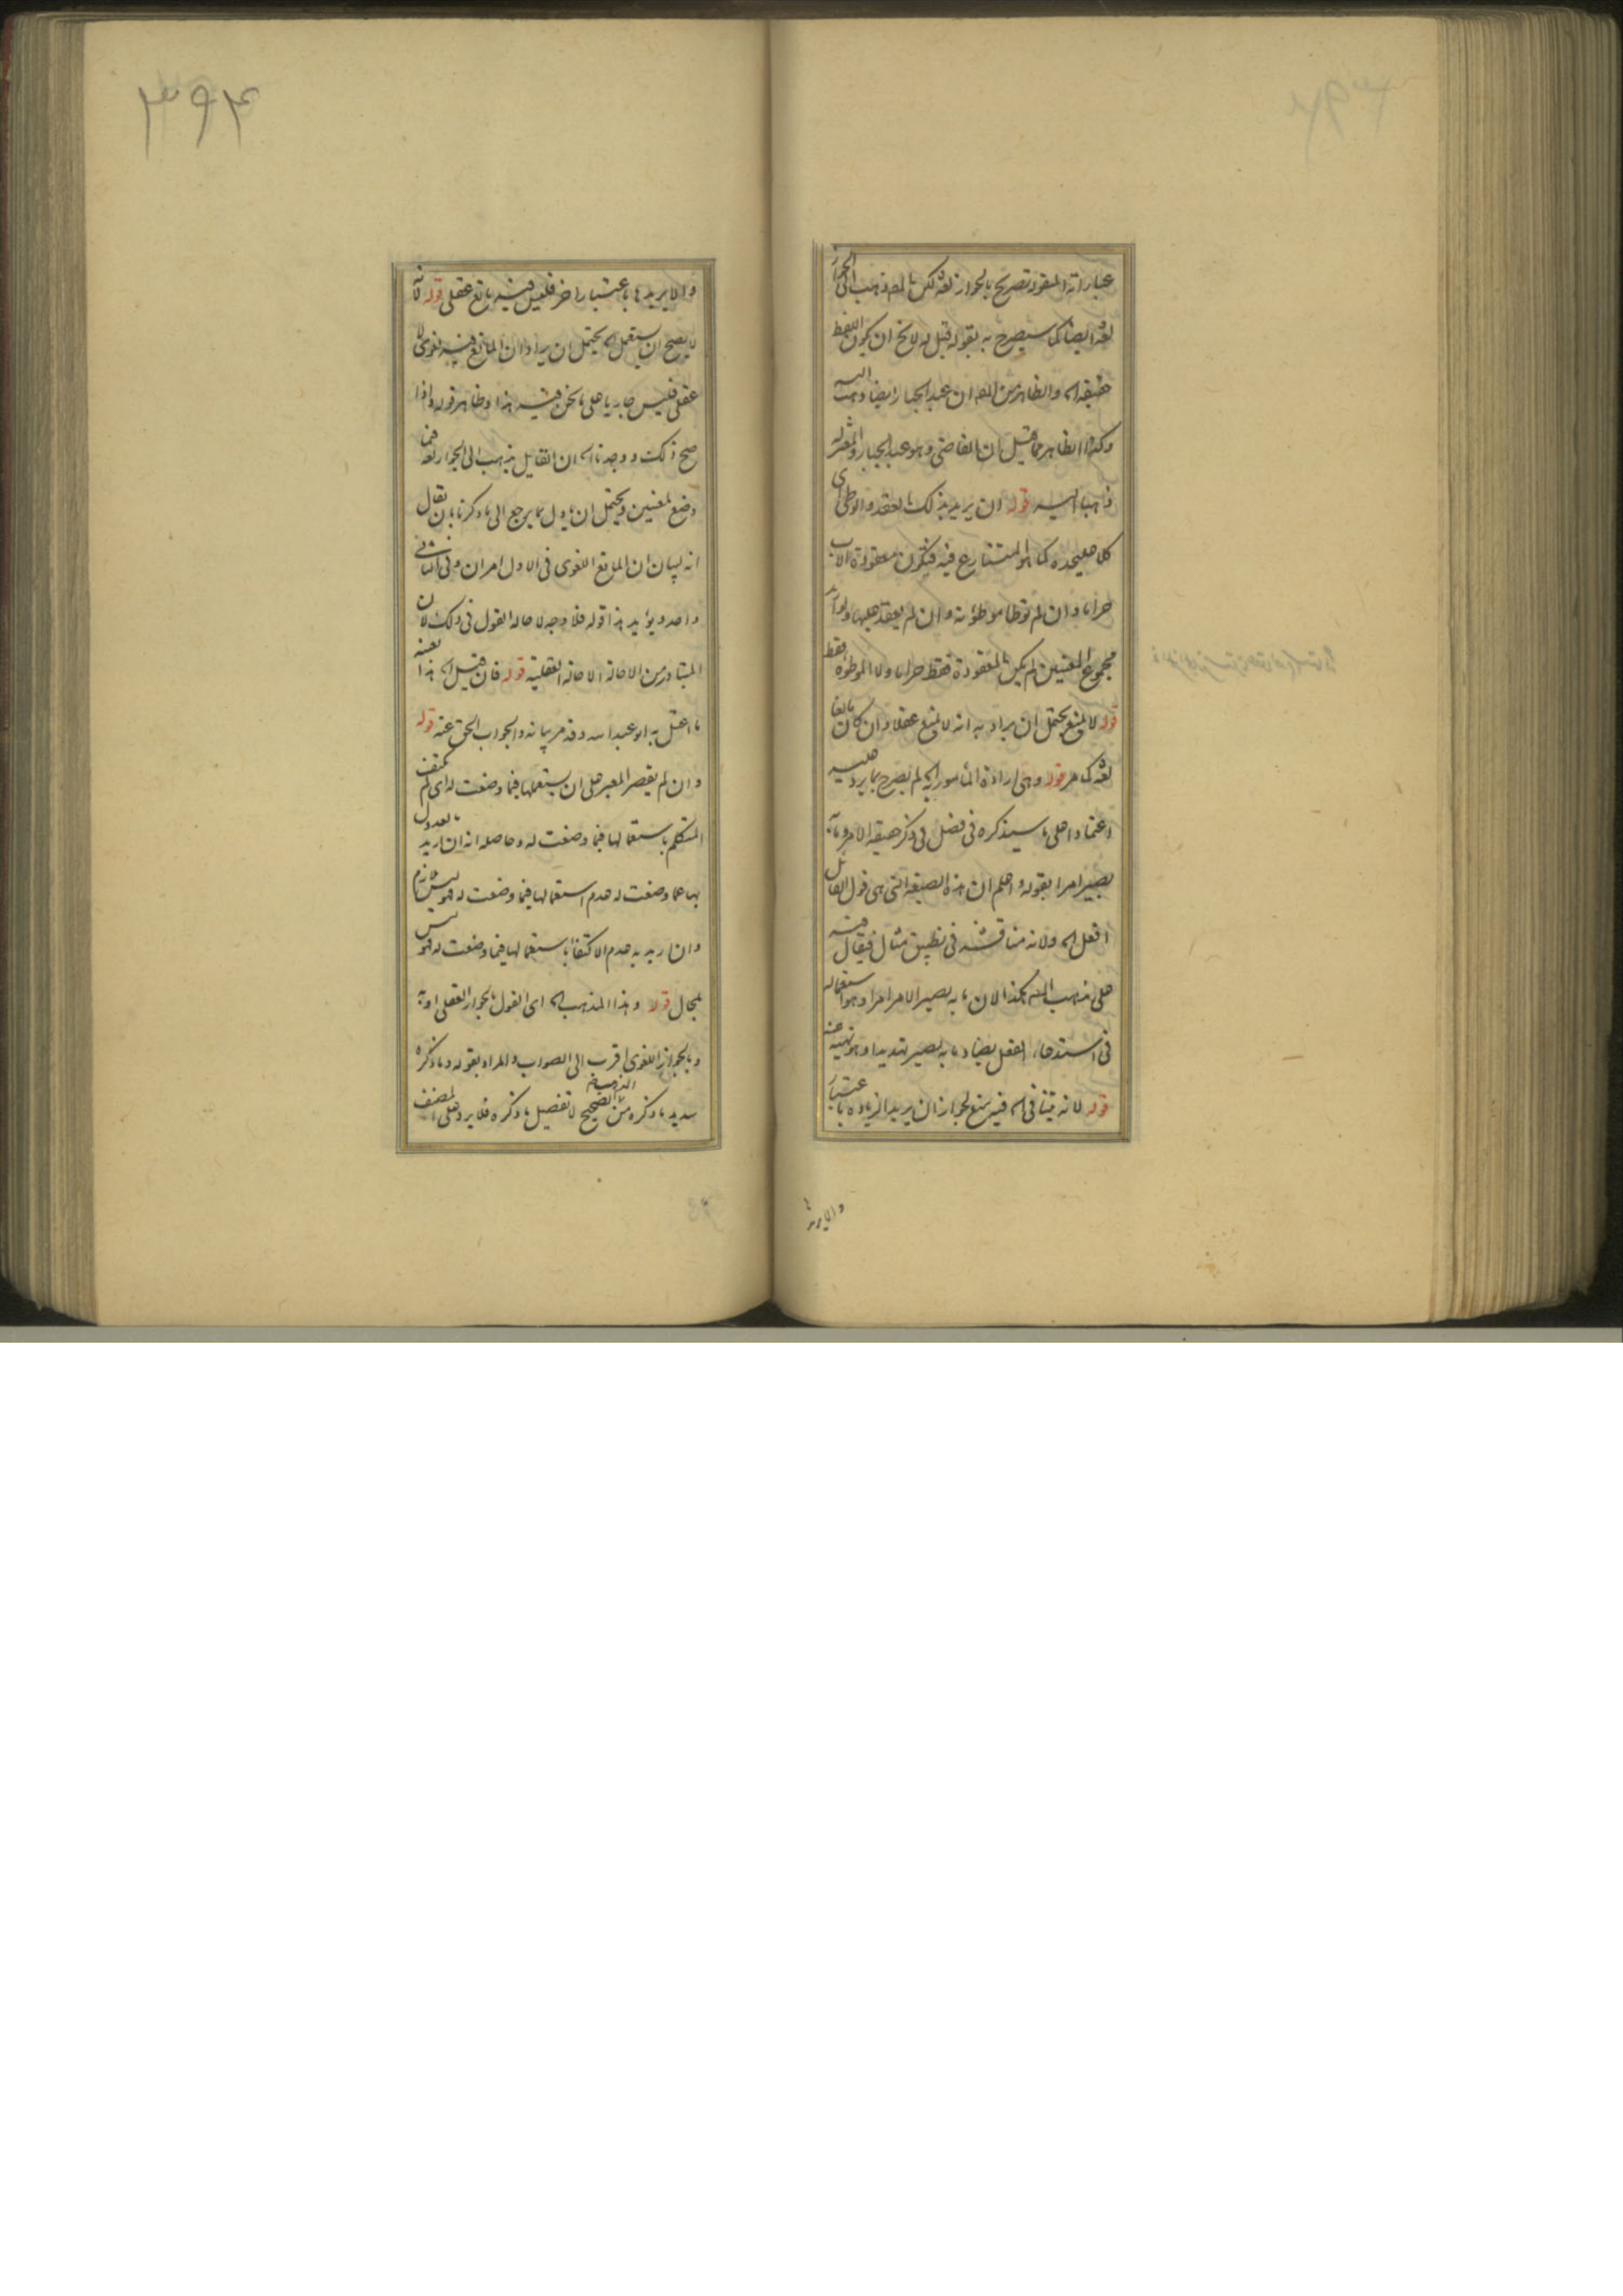 عباراته المنقولة تصريح بالجواز لغة لكن المص ذهب الى الجواز
لغة ايضا كما سيصرح به بقوله قبل له لا يخ ان يكون اللفظ
حقيقة اه والظاهر من المص ان عبد الجبار ايضا ذهب اليه
وكذا الظاهر مما قيل ان القاضى وهو عبد الجبار والمعتزلة
ذهبا اليه قوله وان يريد بذلك العقد والوطى اى
كلا عليحدة كما هو المتنازع فيه فيكون معقودة الاب
حراما وان لم توطا وموطوئته وان لم يعقد عليها ولو اريد
مجموع المعنيين لم يكن المعقودة فقط حراما ولا الموطوة فقط
قوله لا يمتنع يحتمل ان يراد به انه لا يمتنع عقلا وان كان مانعا
لغة كما مر قوله وهى ارادة المامور به اه لم يصرح بما يرد عليه
اعتمادا على ما سيذكره فى فصل فى ذكر حقيقة الامر وما به
يصير امرا بقوله واعلم ان هذه الصيغة التى هى قول القائل
افعل اه ولانه مناقشة فى تطبيق مثال فيقال فيه
على مذهب المص هكذا لان ما به يصير الامر امرا وهو استعماله
فى استدعاء الفعل يضاد ما به يصير تهديدا وهو نهيه عنه
قوله لانه يتنافى اه فيه منع لجواز ان يريد الزيادة باعتبار
والا يريدها
٣٩٤
والا يريدها باعتبار اخر فليس فيه مانع عقلى قوله لانه
لا يصح ان يستعمل اه يحتمل ان يراد ان المانع فيه لغوى لا
عقلى فليس جاريا على ما نحن فيه هذا وظاهر قوله واذا
صح ذلك ووجدنا اه ان القايل يذهب الى الجواز لغة فيما
وضع لمعنيين ويحتمل ان ياول بما يرجع الى ما ذكرنا بان يقال
انه لبيان ان المانع اللغوى فى الاول امران وفى الثانى
واحد ويؤيد هذا قوله فلا وجه لاحالة القول فى ذلك لان
المتبادر من الاحالة الاحالة العقلية قوله فان قيل اه هذا بعينه
ما اعتل به ابو عبد الله وقد مر بيانه والجواب الحق عنه قوله
وان لم يقصر المعبر على ان يستعملها فيما وضعت له اى لم يكتف
المتكلم باستعمالها فيما وضعت له وحاصله انه ان اريد بالعدول
بها عما وضعت له عدم استعمالها فيما وضعت له فهو ليس بلازم
وان اريد به عدم الاكتفاء باستعمالها فيما وضعت له فهو ليس
بمحال قوله وهذا المذهب اه اى القول بالجواز العقلى او به
وبالجواز اللغوى اقرب الى الصواب والمراد بقوله وما ذكره
سديد ما ذكره من الصحيح لا تفصيل ما ذكره فلا يرد على المصنف